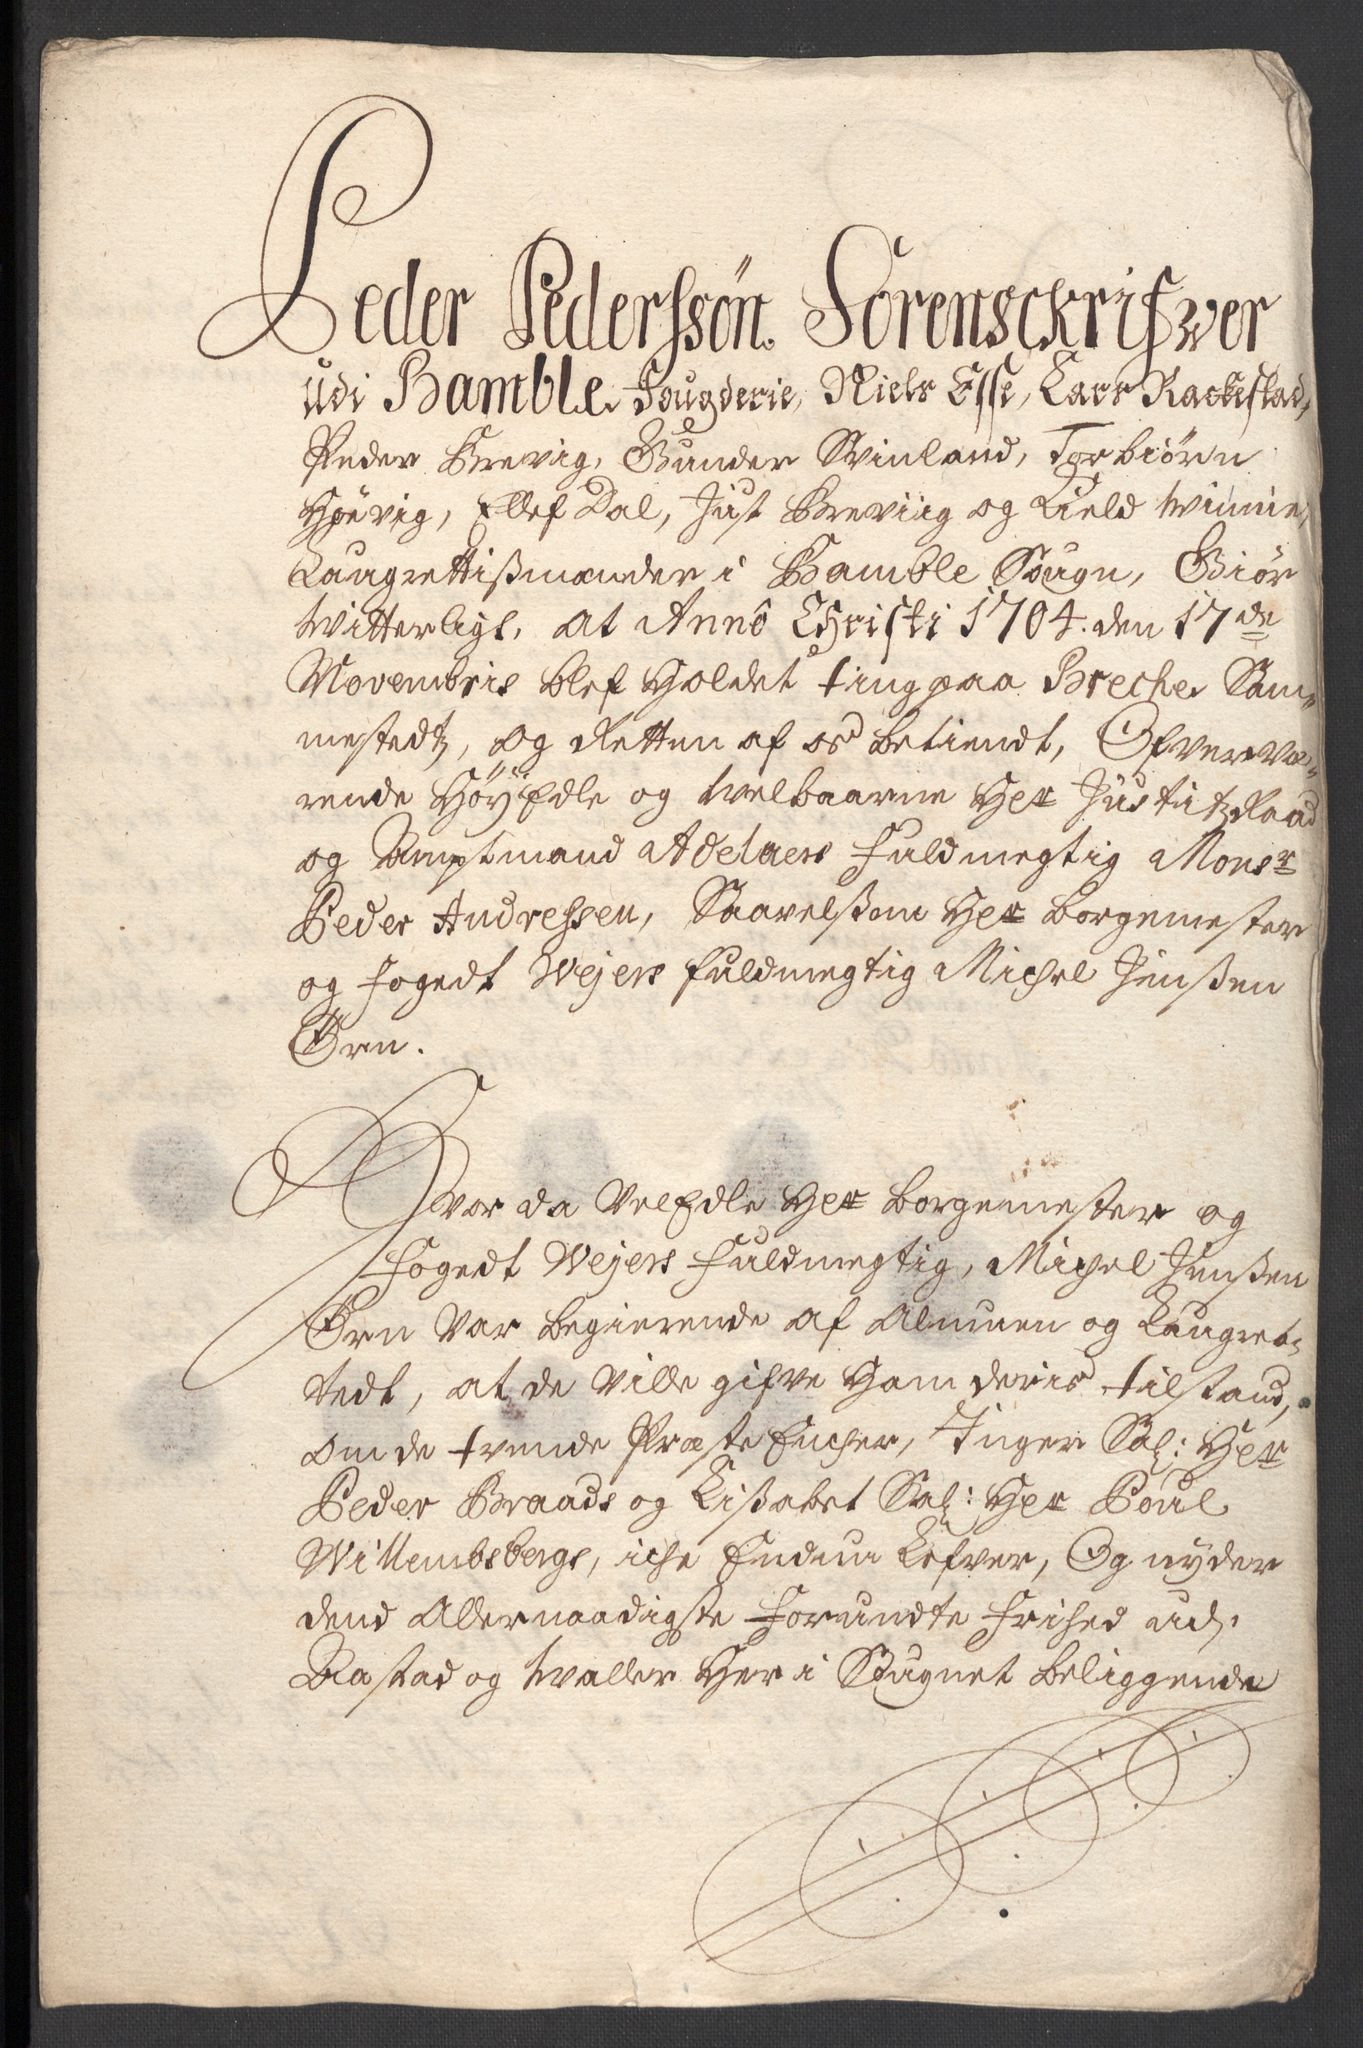 Peder Pederssøn Sorenschrifwer
udi Bamble Fougderie, Niels Esse, Lars Rackestad,
Peder Brevig, Gunder Svinland, Torbiørn
Høevig, Ellef Dal, Just Breviig og Kield Winnie,
Laugrettißmænder i Bamble Sougn, Giør
Witterligt, at Annô Christi 1704. den 17de
Novembris blef holdet ting paa Breche Sam-
mestedtz, og Retten af os betiendt, Ofverwæ-
rende HøyEdle og Welbaarne Her Justitz Raad
og Amptmand Adelaers Fuldmegtig Monsr
Peder Andressen, Saavelßom Her Borgemester
og Fogedt Wejers fuldmegtig Michel Jenßen
Ørn.
Hvor da VelEdle Her Borgemester og
Fogedt Wejers Fuldmegtig, Michel Jenßen
Ørn Var begierende af Almuen og Laugret-
tedt, at de Ville gifve ham deris tilstand,
om de tvende Præste Encher, Inger Sal: Her
Peder Braads og Lißabet Sal: Her Poul
Willembsbergs, iche Endnu Lefver, Og nyder
dend Allernaadigste Forundte Frihed udj
Aastad og Waller her i Sougnet beliggende